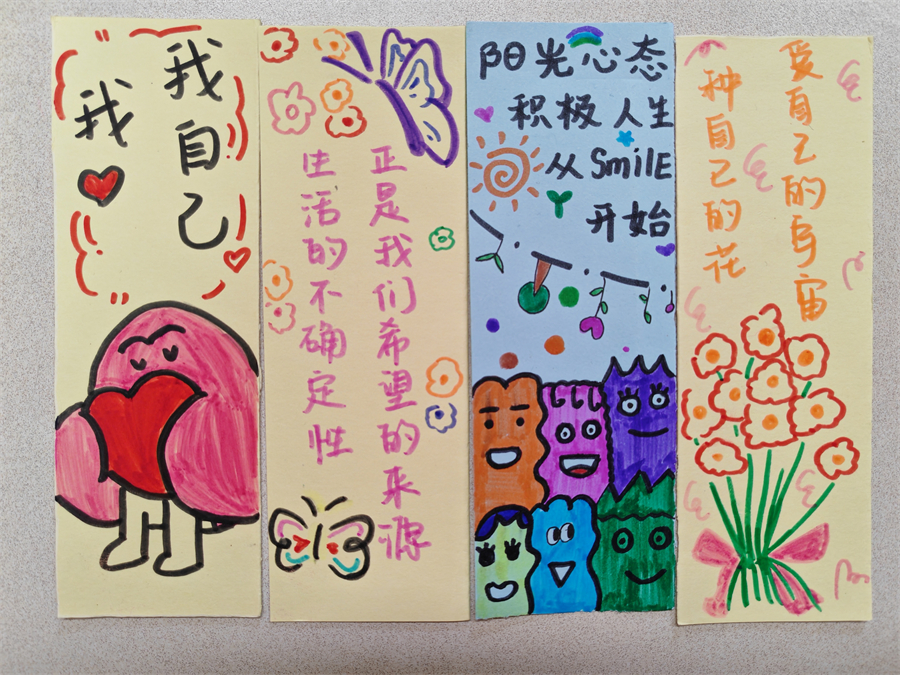 我
我自己
生活的不确定性
正是我们希望的来源
阳光心态
积极人生
从SmilE
开始
种自己的花
爱自己的宇宙